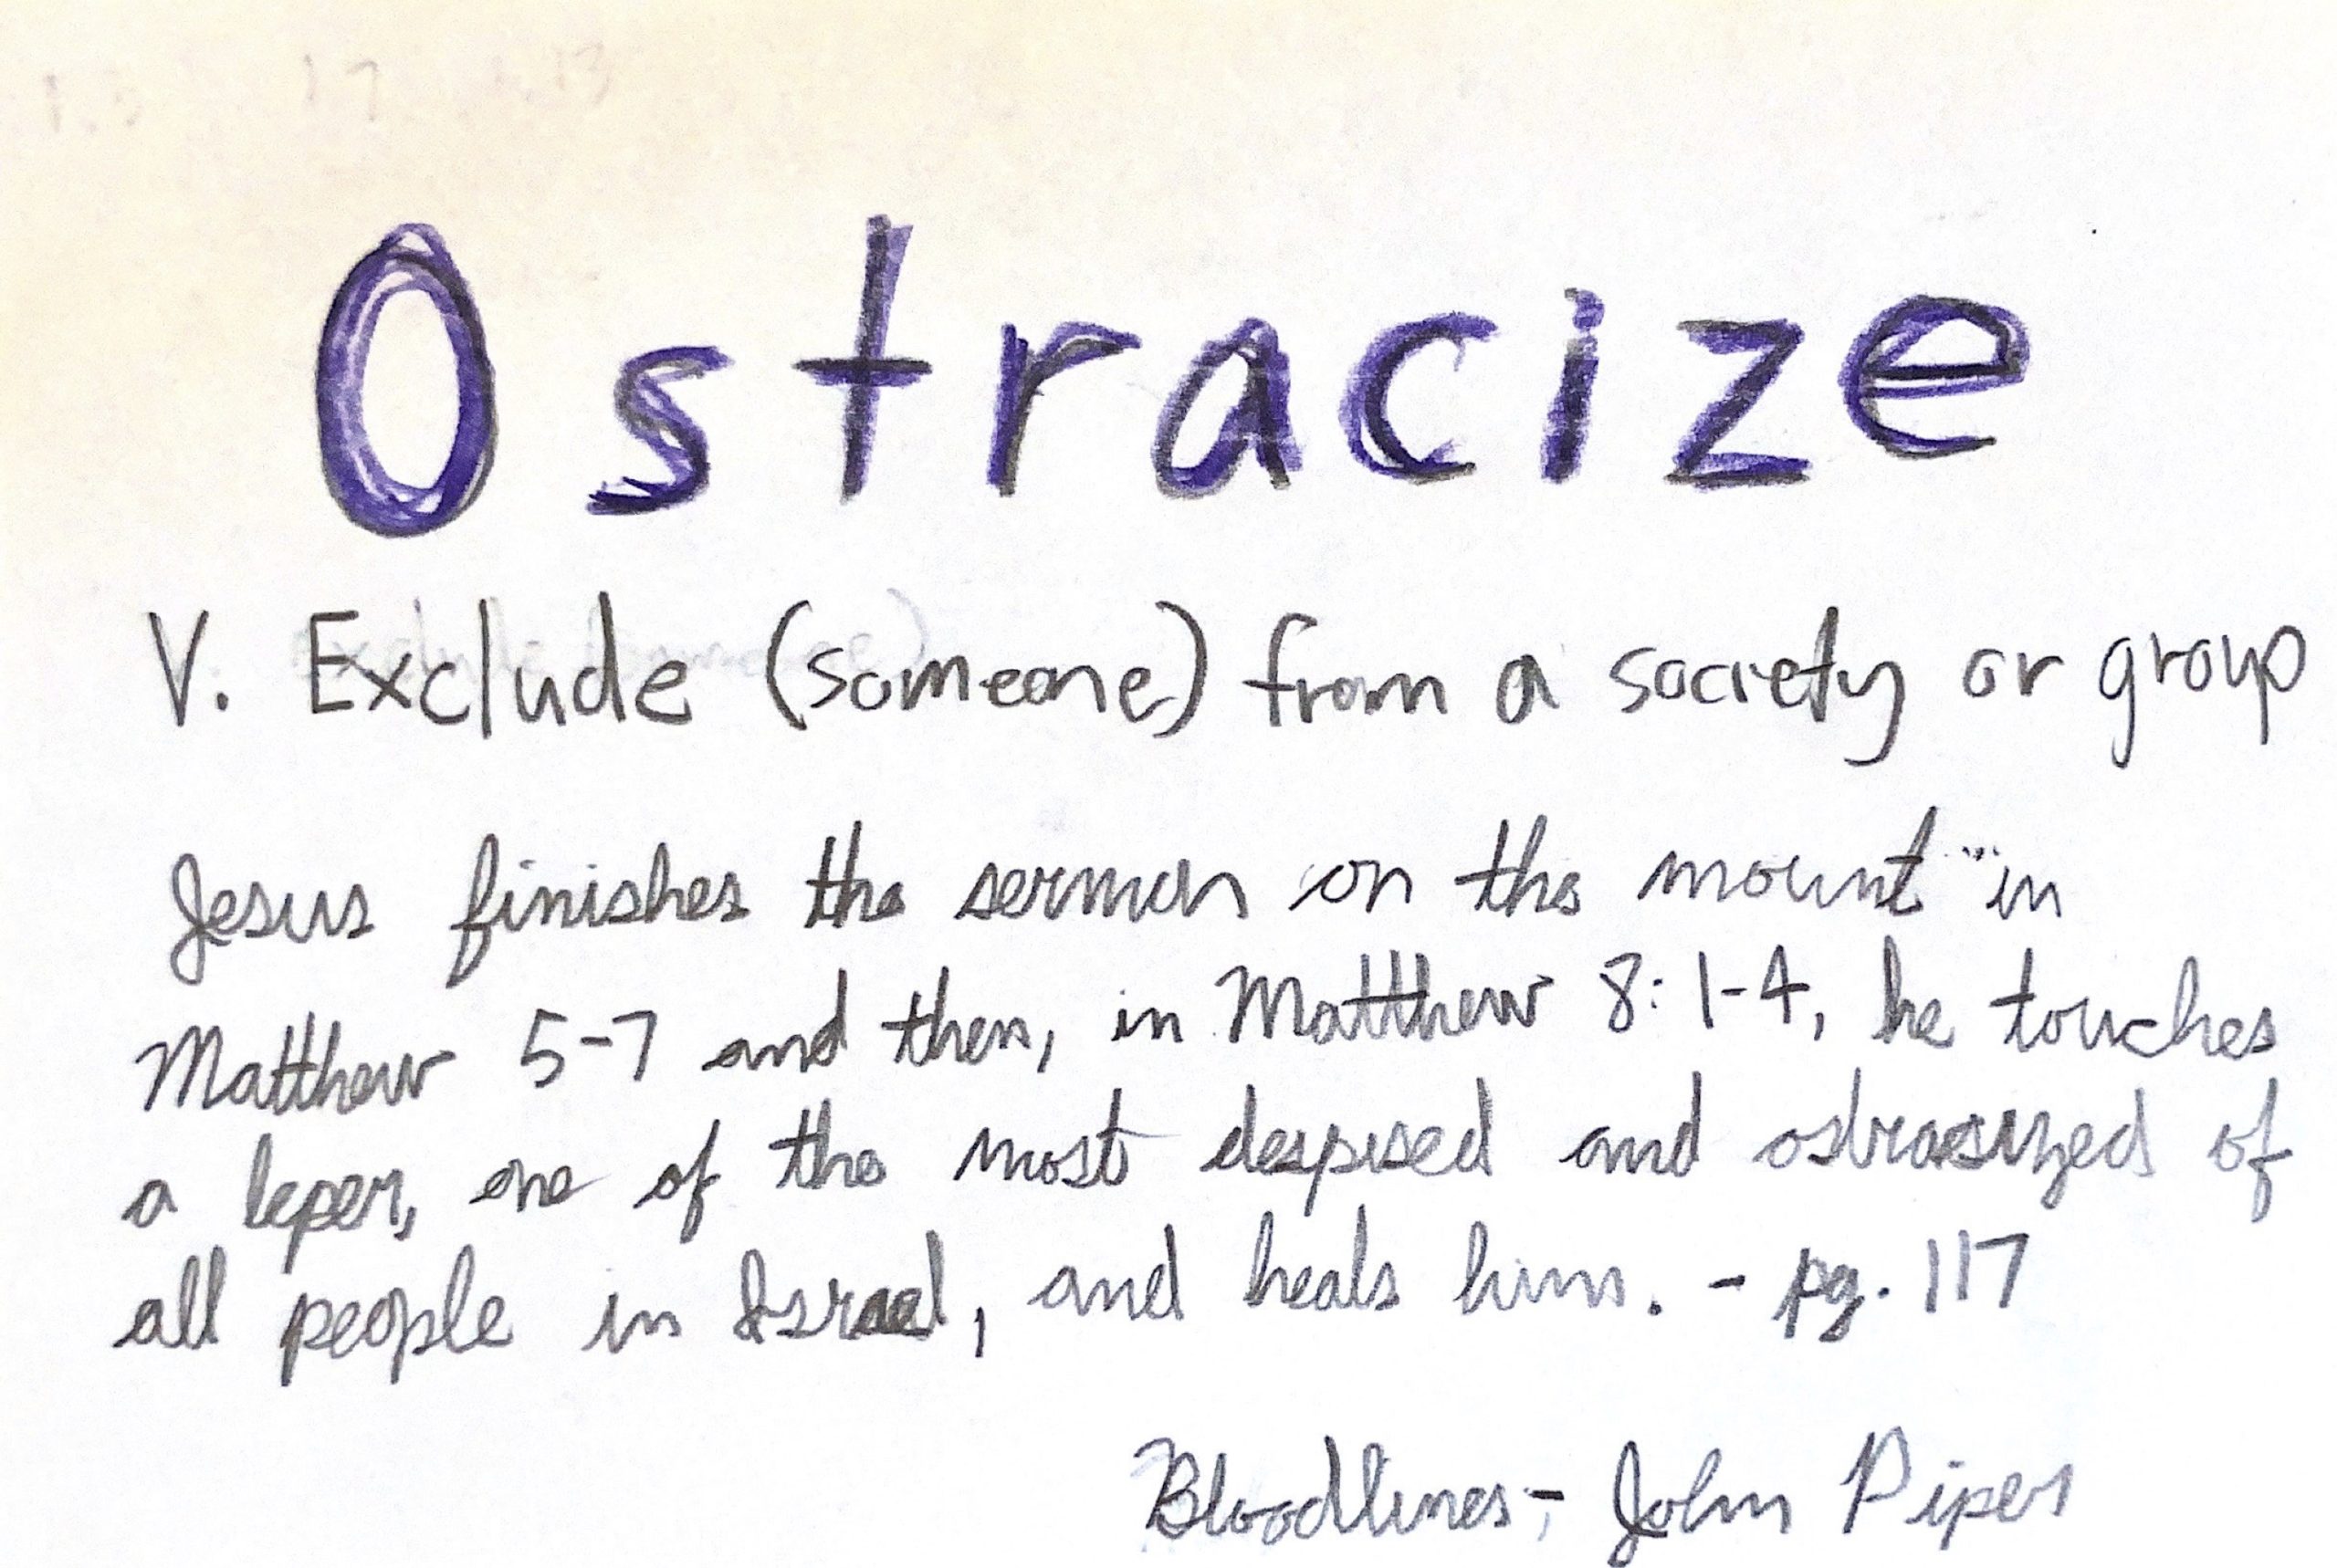 Ostracize
V. Exclude (someone) from a society or group
Jesus finishes the sermon on the mount in
Matthew 5-7 and then, in Matthew 8:1-4, he touches
a leper, one of the most despised and ostrasized of
all people in Israel, and heals him. - pg. 117
Bloodlines - John Piper